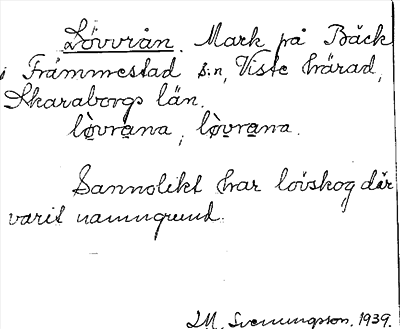 Lövvrån. Mark på Bäck
i Främmestad s:n, Viste härad,
Skaraborgs län.
lòvrana, lòvrana.
Sannolikt har lövskog där
varit namngrund.
J.M. Svenningsson. 1939.